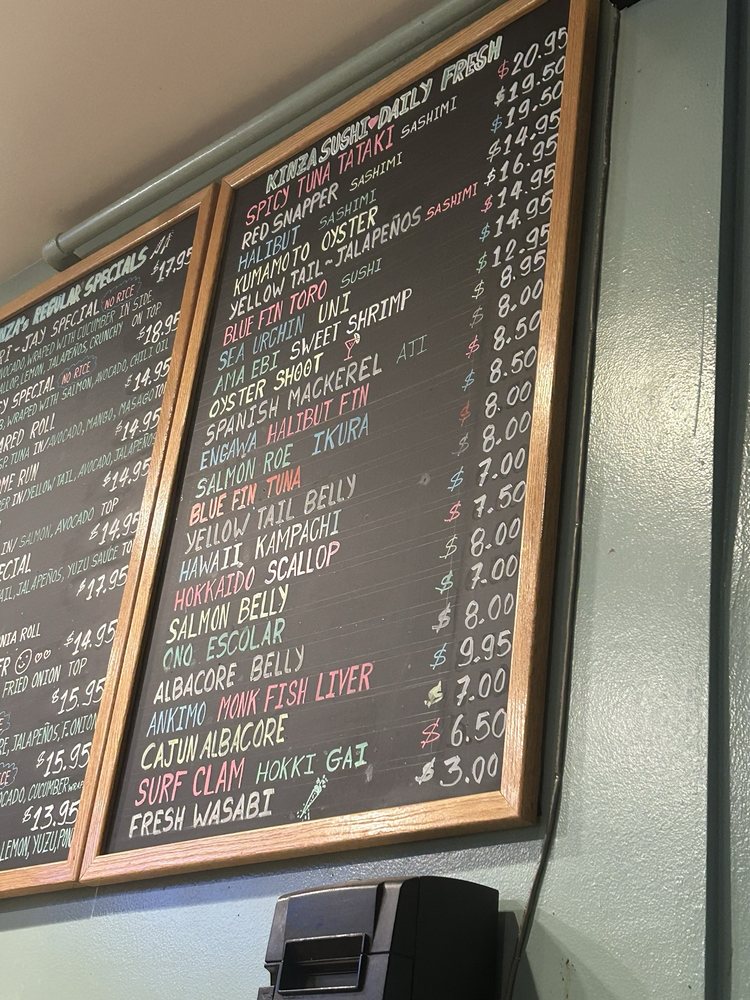 REGULAR SPECIALS
-JAY SPECIAL NO RICE $17.95
WRAPPED WITH CUCUMBER IN SIDE
LEMON, JALAPEÑOS, CRUNCHY ON TOP
SPECIAL NO RICE $18.95
WRAPPED WITH SALMON, AVOCADO, CHILI OIL
ROLL $14.95
TUNA IN/AVOCADO, MANGO, MASAGO
RUN $14.95
IN/YELLOW TAIL, AVOCADO, JALAPEÑOS
$14.95
IN/SALMON, AVOCADO TOP
$14.95
JALAPEÑOS, YUZU SAUCE
$17.95
ROLL
$14.95
FRIED ONION TOP
$15.95
JALAPEÑOS, F.ONION
$15.95
CUCUMBER WRAP
$13.95
LEMON, YUZU,
KINZA SUSHI♥DAILY FRESH
SPICY TUNA TATAKI SASHIMI $20.95
RED SNAPPER SASHIMI $19.50
HALIBUT SASHIMI $19.50
KUMAMOTO OYSTER $14.95
YELLOW TAIL~JALAPEÑOS SASHIMI $16.95
BLUE FIN TORO SUSHI $14.95
SEA URCHIN UNI $14.95
AMA EBI SWEET SHRIMP $12.95
OYSTER SHOOT $8.95
SPANISH MACKEREL AJI $8.00
ENGAWA HALIBUT FIN $8.50
SALMON ROE IKURA $8.50
BLUE FIN TUNA $8.00
YELLOW TAIL BELLY $8.00
HAWAII KAMPACHI $7.00
HOKKAIDO SCALLOP $7.50
SALMON BELLY $8.00
ONO ESCOLAR $7.00
ALBACORE BELLY $8.00
ANKIMO MONK FISH LIVER $9.95
CAJUN ALBACORE $7.00
SURF CLAM HOKKI GAI $6.50
FRESH WASABI $3.00